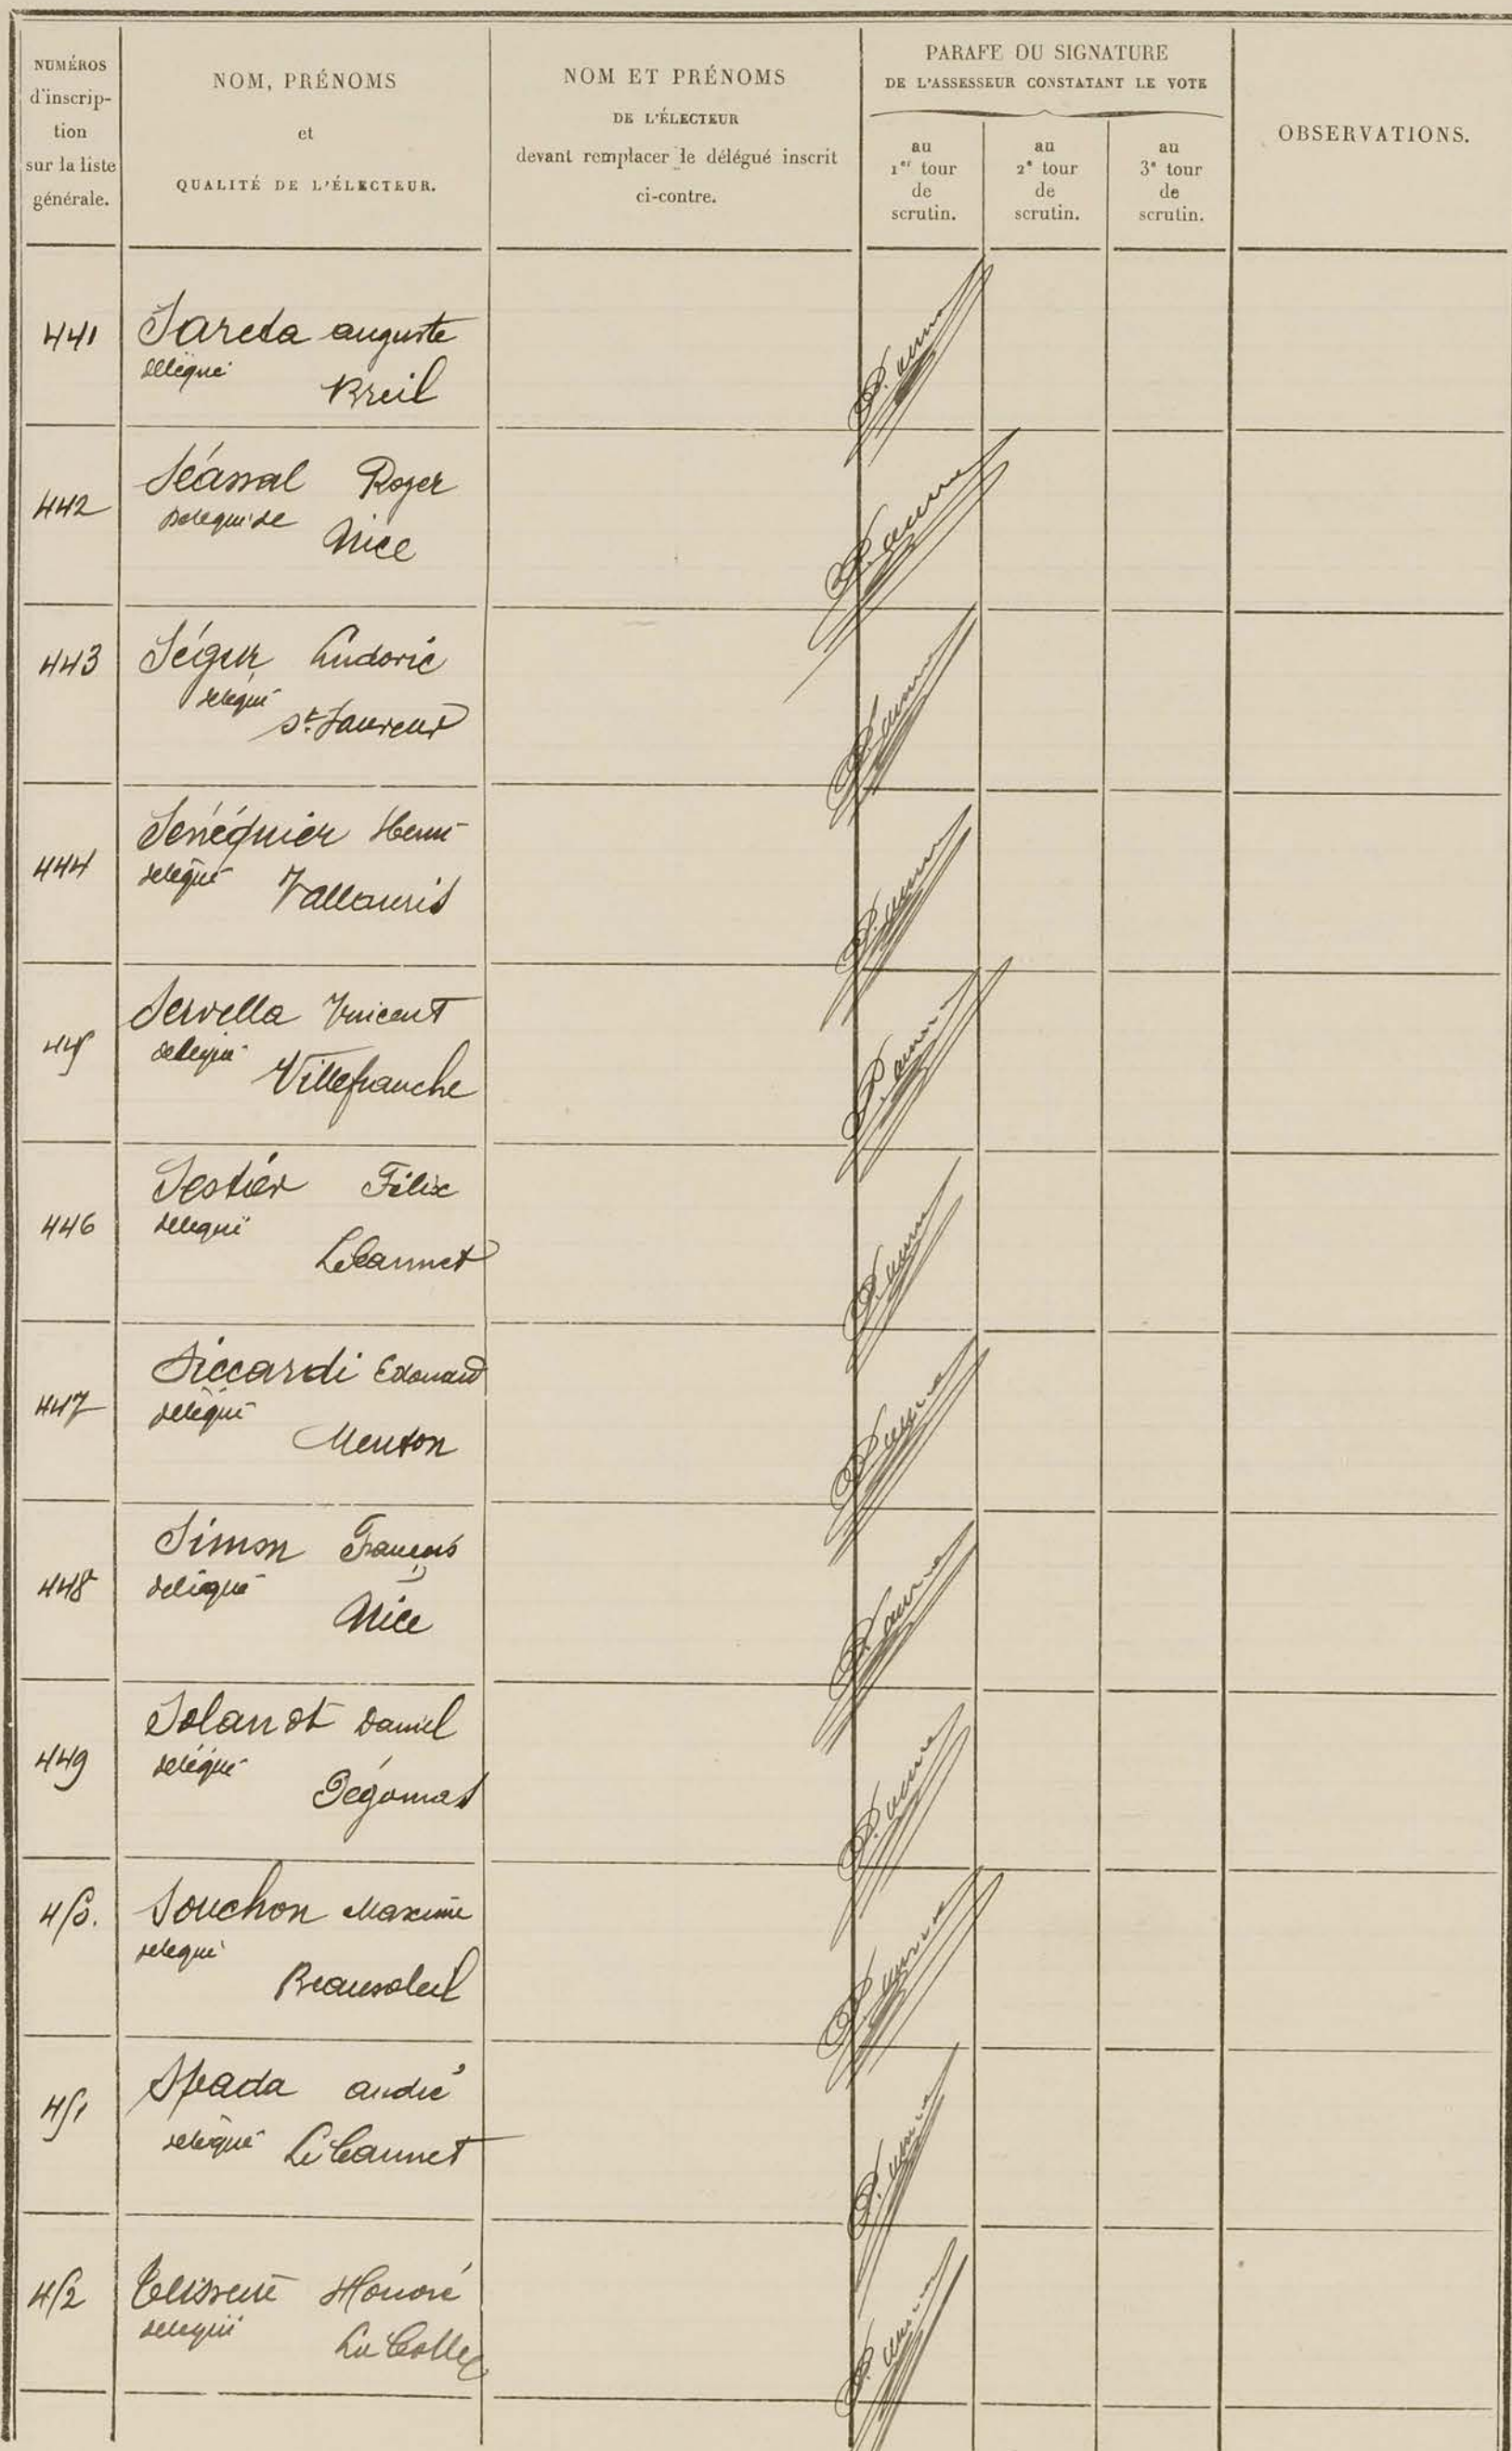 NUMÉROS
d'inscrip-
tion
sur la liste
générale.
NOM, PRÉNOMS
et
QUALITÉ DE L'ÉLECTEUR.
NOM ET PRÉNOMS
DE L'ÉLECTEUR
devant remplacer le délégué inscrit
ci-contre.
PARAFE OU SIGNATURE
DE L'ASSESSEUR CONSTATANT LE VOTE
au
1er tour
de
scrutin.
au
2e tour
de
scrutin.
au
3e tour
de
scrutin.
OBSERVATIONS.
441 Sareda auguste
délégué
Breil
442 Séassal Roger
Délégué de
Nice
443 Ségur Ludovic
délégué
St. Laurent
444 Sénéquier Henri
délégué Vallauris
445 Servella Vincent
délégué
Villefranche
446 Sestier Félix
délégué
Le Cannet
447 Siccardi Edouard
délégué
Menton
448 Simon François
délégué
Nice
449 Solanot Daniel
délégué
Pégomas
450. Souchon Maxime
délégué
Beausoleil
451 Spada andré
délégué Le Cannet
452 Honoré
délégué
La Colle